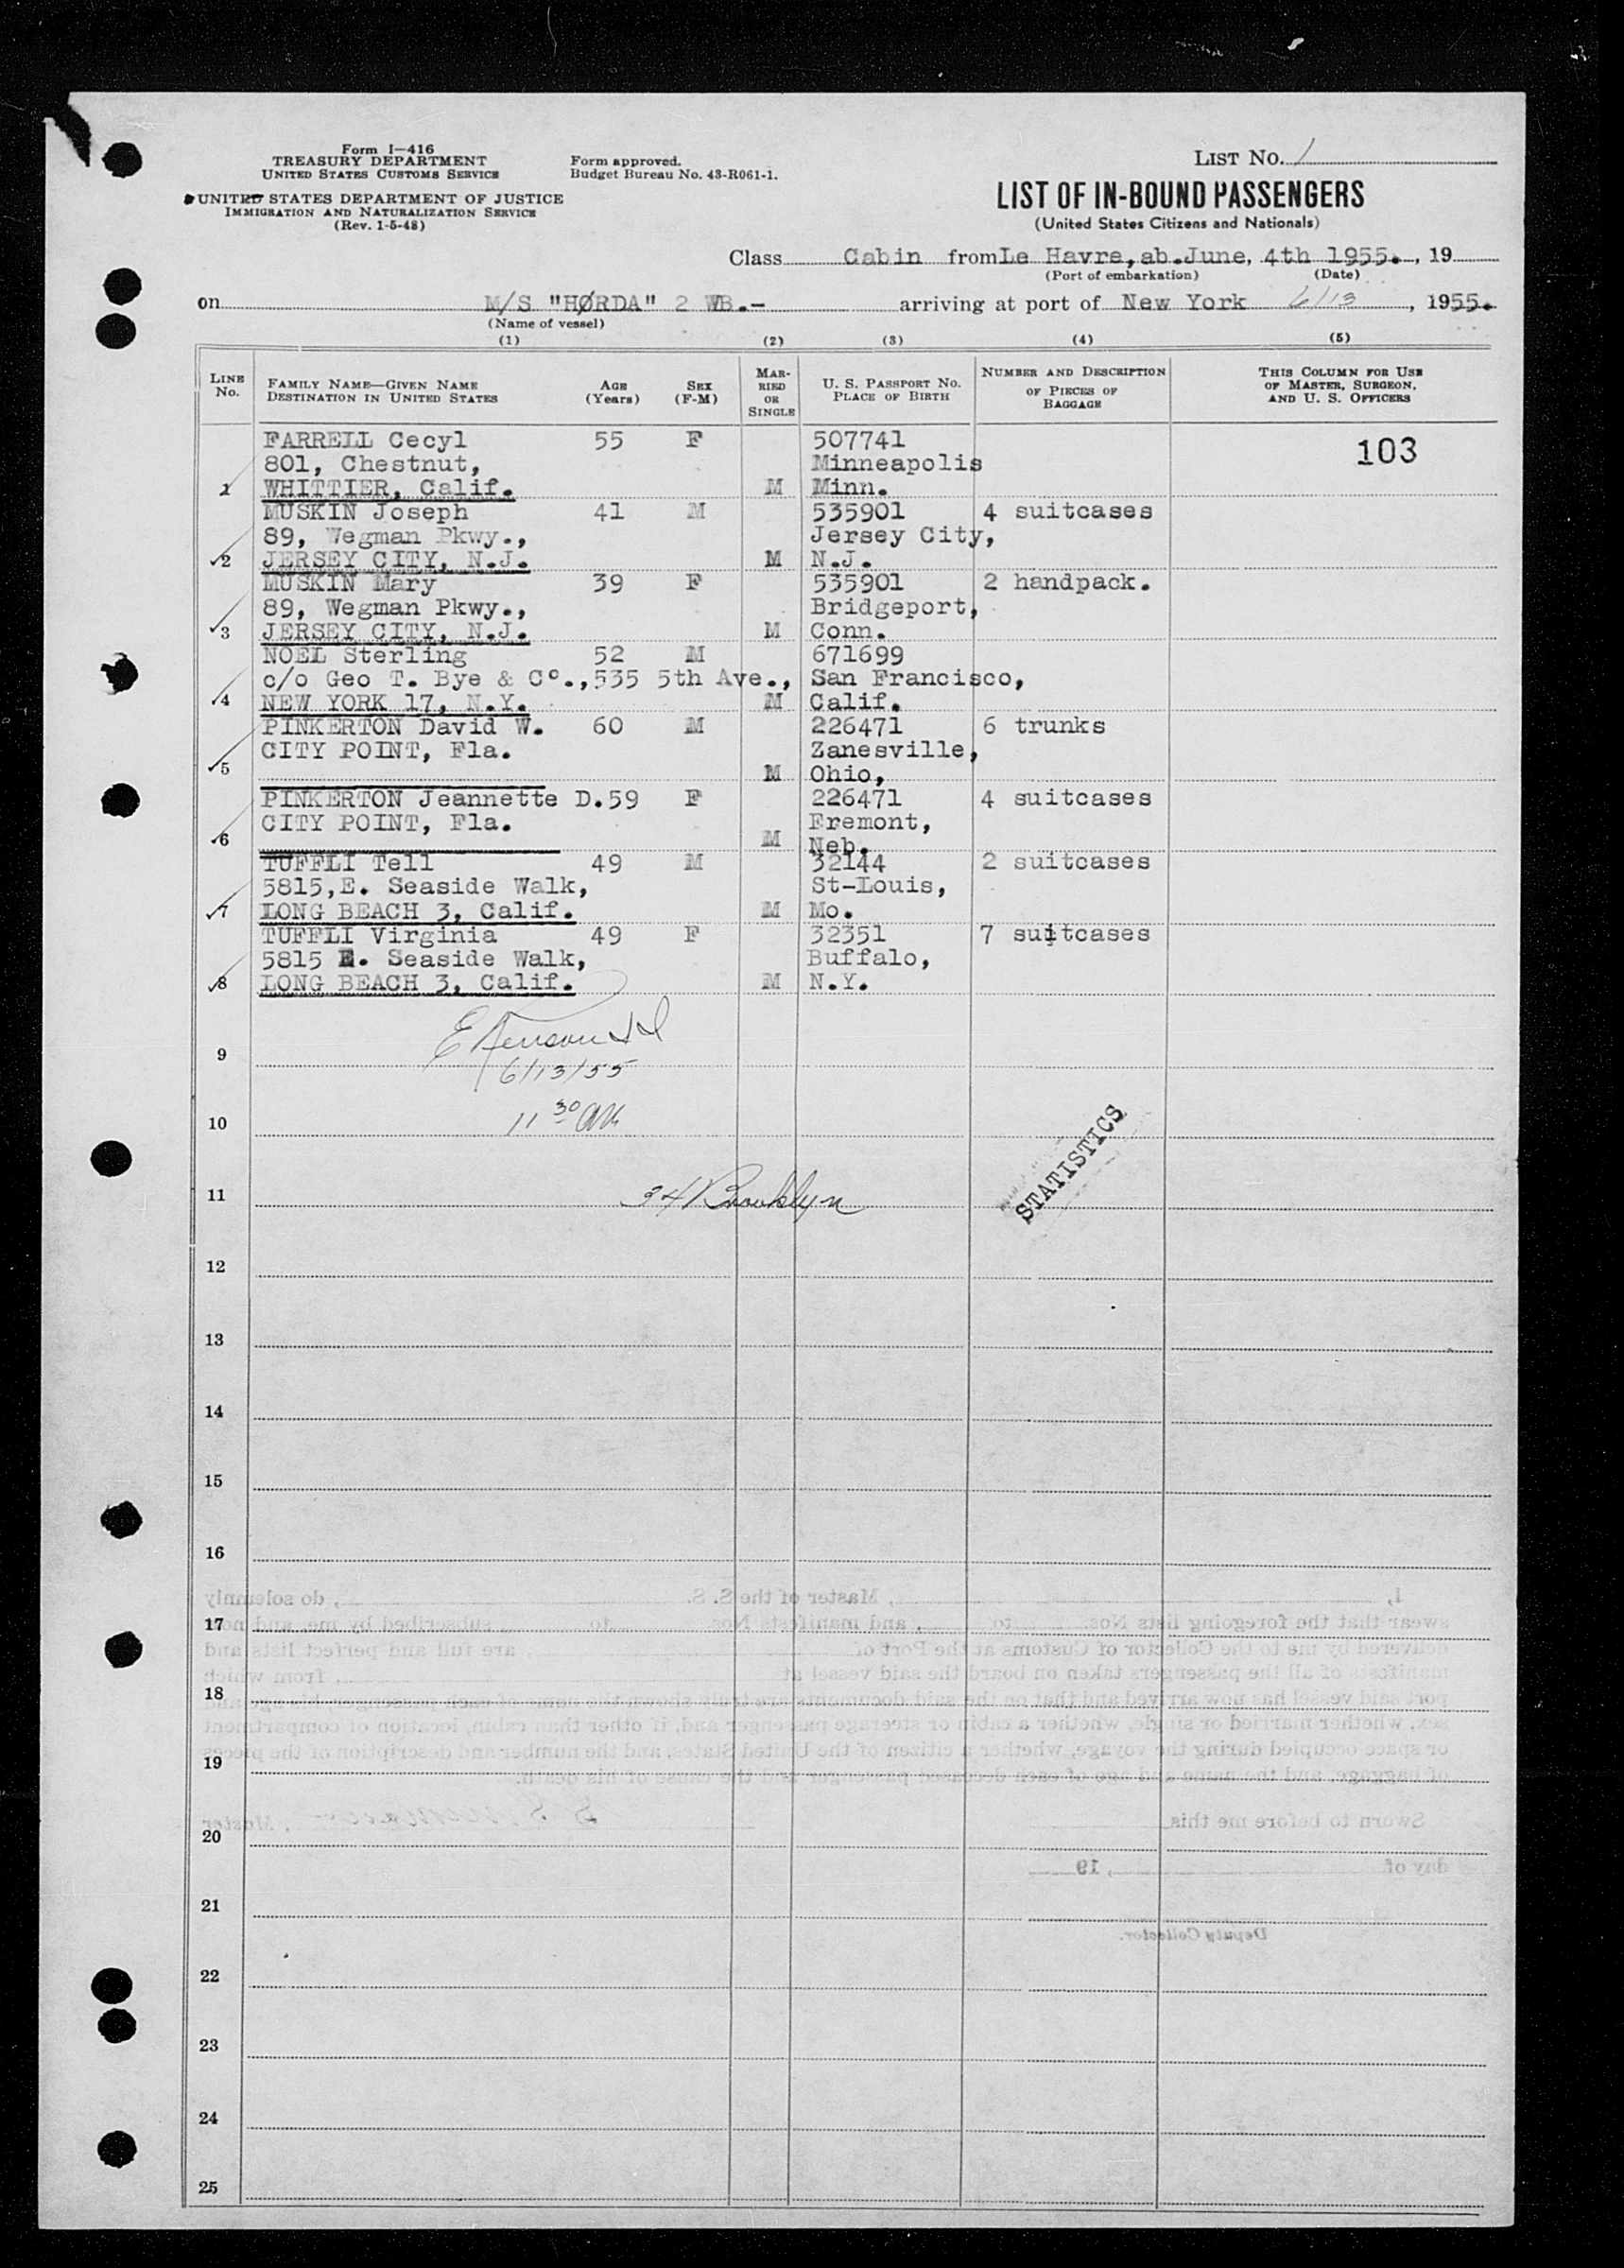 Form I—416
TREASURY DEPARTMENT
UNITED STATES CUSTOMS SERVICE
Form approved.
Budget Bureau No. 43-R061-1.
LIST NO. 1
UNITED STATES DEPARTMENT OF JUSTICE
IMMIGRATION AND NATURALIZATION SERVICE
(Rev. 1-5-48)
LIST OF IN-BOUND PASSENGERS
(United States Citizens and Nationals)
Class Cabin from Le Havre, ab. June, 4th 1955. , 19
(Port of embarkation) (Date)
on M/S "HØRDA" 2 WB.- arriving at port of New York 6/13 , 1955.
(Name of vessel)
(1) (2) (3) (4) (5)
LINE No. FAMILY NAME—GIVEN NAME DESTINATION IN UNITED STATES AGE (Years) SEX (F-M) MARRIED OR SINGLE U. S. PASSPORT NO. PLACE OF BIRTH NUMBER AND DESCRIPTION OF PIECES OF BAGGAGE THIS COLUMN FOR USE OF MASTER, SURGEON, AND U. S. OFFICERS
FARRELL Cecyl 55 F 507741 103
801, Chestnut, Minneapolis
1 WHITTIER, Calif. M Minn.
MUSKIN Joseph 41 M 535901 4 suitcases
89, Wegman Pkwy., Jersey City,
2 JERSEY CITY, N.J. M N.J.
MUSKIN Mary 39 F 535901 2 handpack.
89, Wegman Pkwy., Bridgeport,
3 JERSEY CITY, N.J. M Conn.
NOEL Sterling 52 M 671699
c/o Geo T. Bye & C°.,535 5th Ave., San Francisco,
4 NEW YORK 17, N.Y. M Calif.
PINKERTON David W. 60 M 226471 6 trunks
CITY POINT, Fla. Zanesville,
5 M Ohio,
PINKERTON Jeannette D. 59 F 226471 4 suitcases
CITY POINT, Fla. Fremont,
6 M Neb.
TUFFLI Tell 49 M 32144 2 suitcases
5815,E. Seaside Walk, St-Louis,
7 LONG BEACH 3, Calif. M Mo.
TUFFLI Virginia 49 F 32351 7 suitcases
5815 E. Seaside Walk, Buffalo,
8 LONG BEACH 3, Calif. M N.Y.
9
6/13/55
10 11 30 AM
STATISTICS
11 34 Brooklyn
12
13
14
15
16
I, , Master of the S. S. , do solemnly
17
18
19
20
Sworn to before me this , Master
day of , 19
21
Deputy Collector.
22
23
24
25